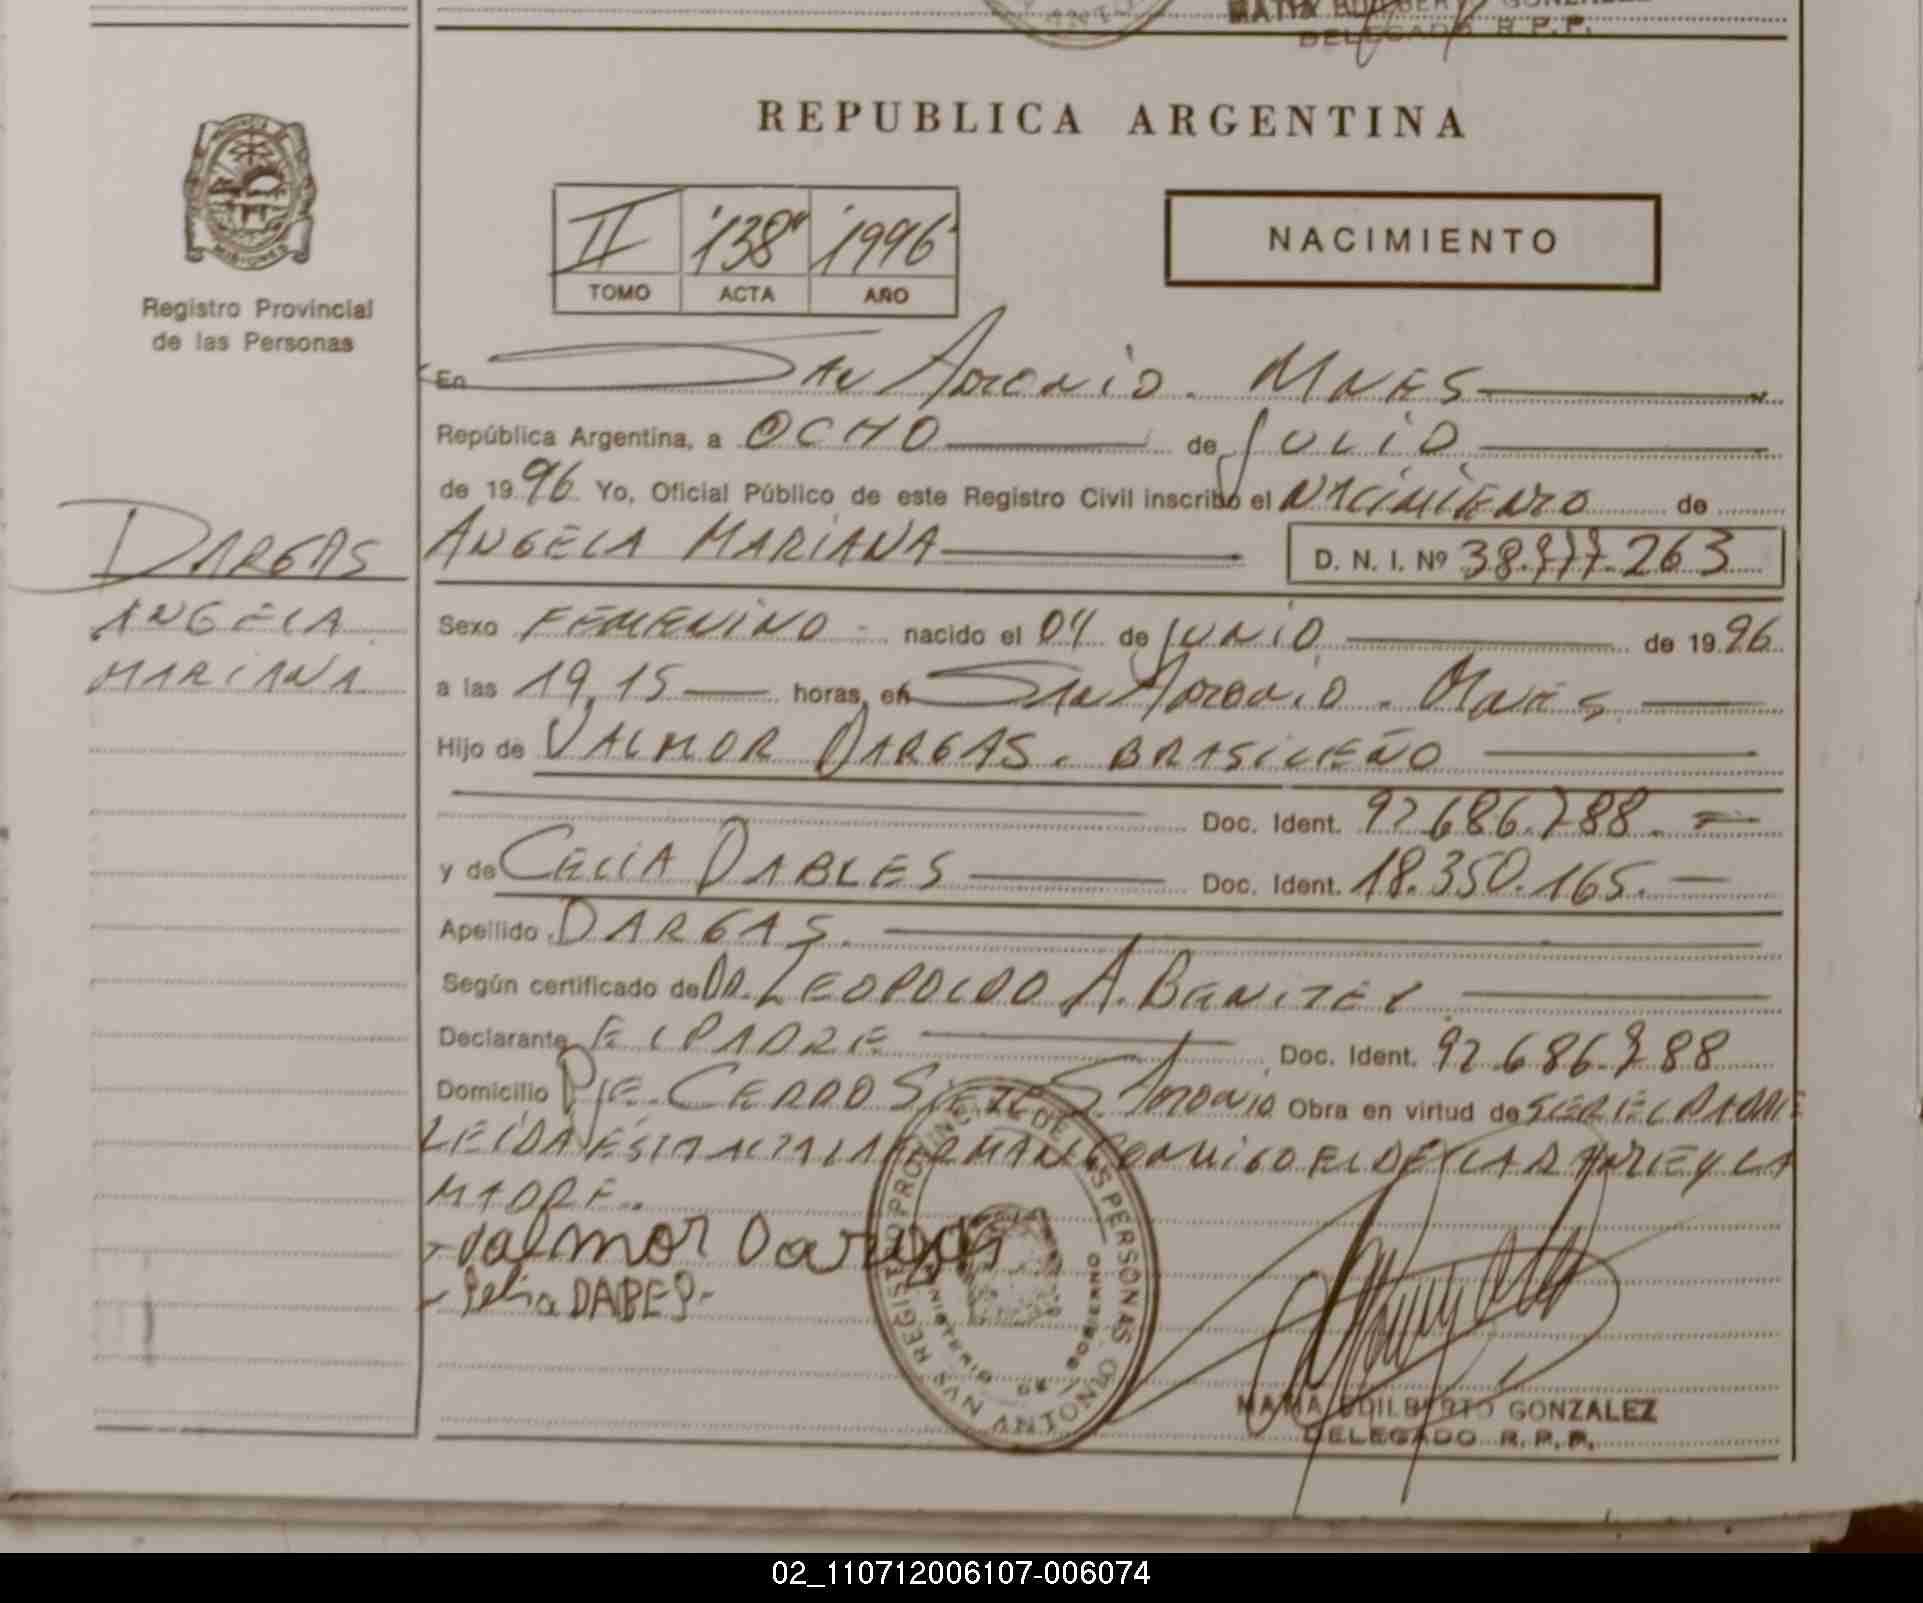 DELEGADO R.P.P.
REPUBLICA ARGENTINA
II "138" 1996
TOMO ACTA AÑO
NACIMIENTO
Registro Provincial
de las Personas
En San Antonio. Mnes
República Argentina, a OCHO de JULIO
de 1996 Yo, Oficial Público de este Registro Civil inscribo el NACIMIENTO de
ANGELA MARIANA D. N. I. Nº 38.777.263
DARGAS
ANGELA
MARIANA
Sexo FEMENINO nacido el 04 de JUNIO de 1996
a las 19,15 horas, en San Antonio. Mnes
Hijo de VALMOR DARGAS. BRASILEÑO
Doc. Ident. 92.686.788.
y de CELIA DABLES Doc. Ident. 18.350.165.
Apellido DARGAS.
Según certificado de DR. LEOPOLDO A. BENITEZ
Declarante EL PADRE Doc. Ident. 92.686.788
Domicilio PJE. CERRO SIETE S. Antonio Obra en virtud de SER EL PADRE
LEIDA ESTA ACTA LA FIRMAN CONMIGO EL DECLARANTE Y LA
MADRE.
- Valmor Dargas
- Celia DABES-
REGISTRO PROVINCIAL DE LAS PERSONAS
MINISTERIO DE GOBIERNO
SAN ANTONIO
MARIA EDILBERTO GONZALEZ
DELEGADO R.P.P.
02_110712006107-006074